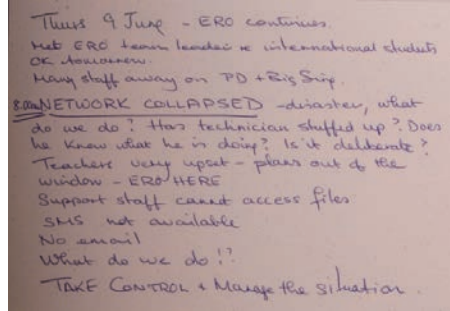 Thurs 9 June - ERO continues.
Met ERO team leader re international students
OK tomorrow.
Many staff away on PD + Big Snip.
8.00am NETWORK COLLAPSED - disaster, what
do we do? Has technician stuffed up? Does
he know what he is doing? Is it deliberate?
Teachers very upset - plans out of the
window - ERO HERE
Support staff cannot access files
SMS not available
No email
What do we do!?
TAKE CONTROL + Manage the situation.